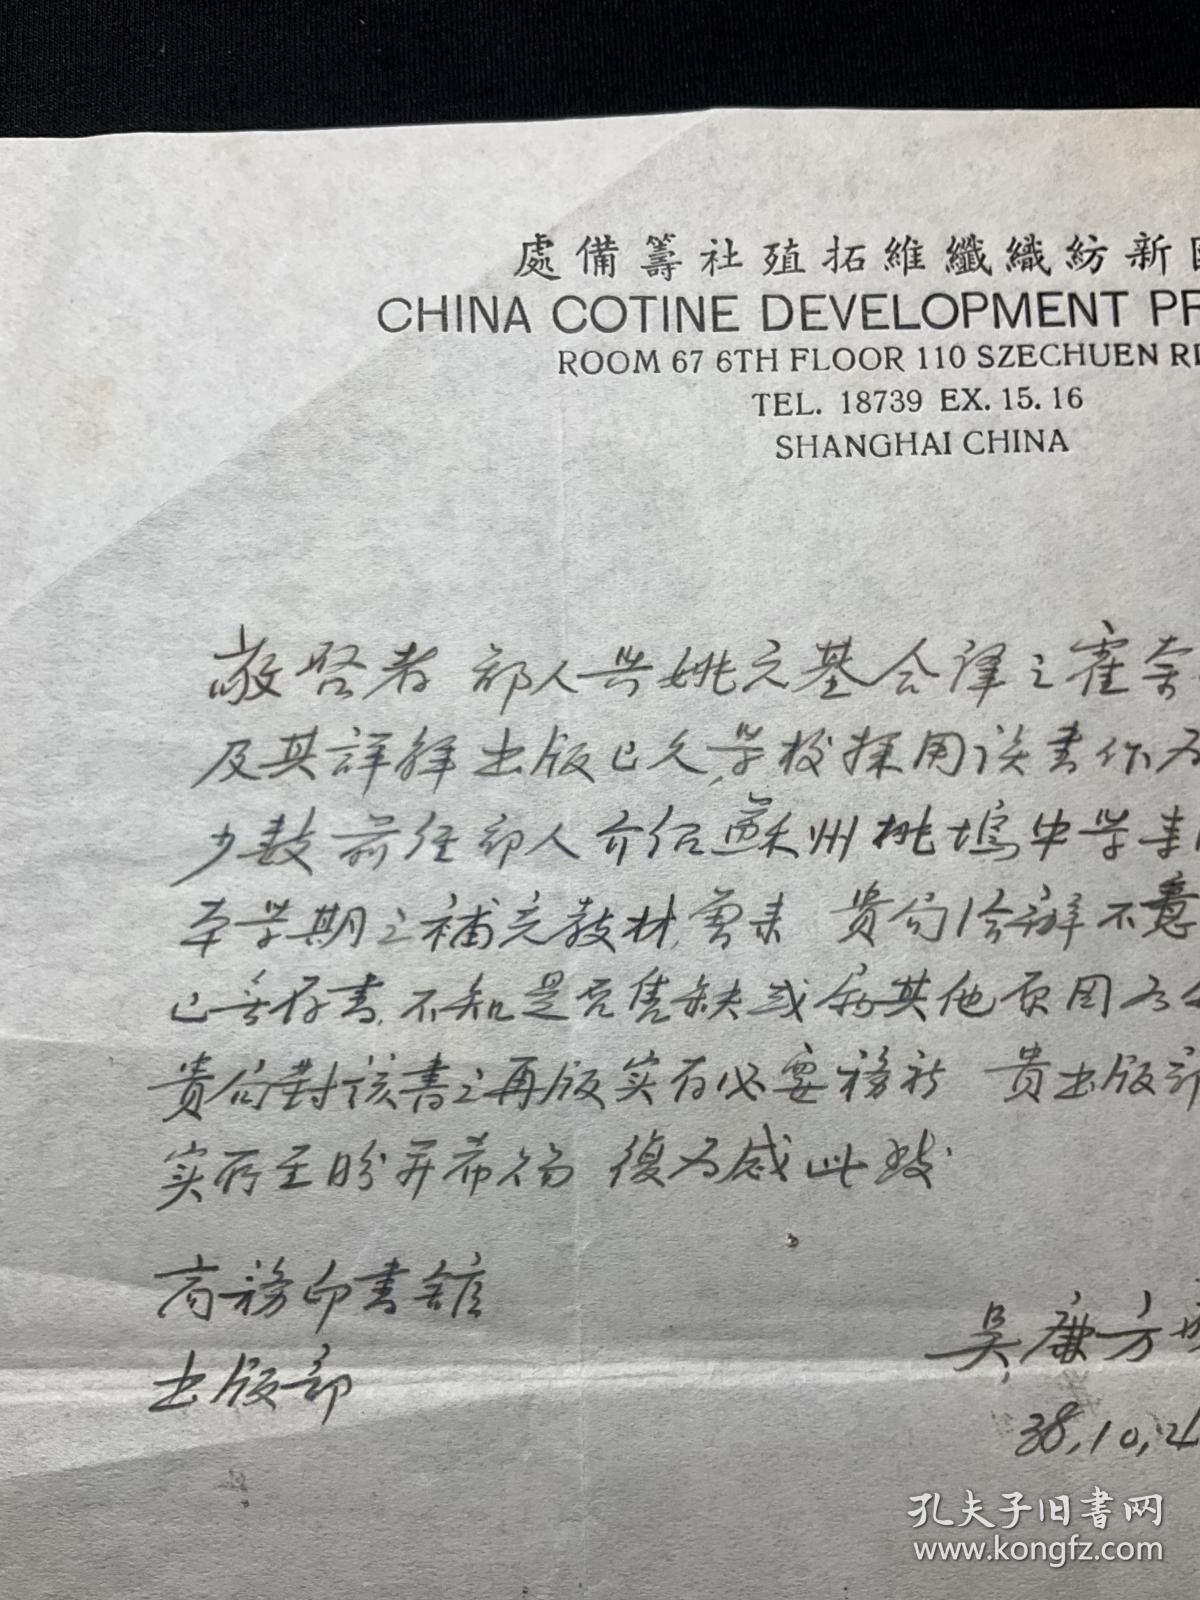 處備籌社殖拓維纖織紡新
CHINA COTINE DEVELOPMENT PR
ROOM 67 6TH FLOOR 110 SZECHUEN R
TEL. 18739 EX. 15. 16
SHANGHAI CHINA
敬啓者 鄙人與姚元基合譯之霍奈
及其詳解出版已久,学校採用该書作为
少数前经鄙人介绍蘇州桃塢中学
本学期之補充教材,曾来 贵局洽辦不意
已無存書,不知是否售缺或為其他原因
貴局對该書之再版实有必要 貴出版部
实所至盼并希 復为感此致
商務印書舘
出版部
吴廉方
38,10,2
孔夫子旧书网
www.kongfz.com